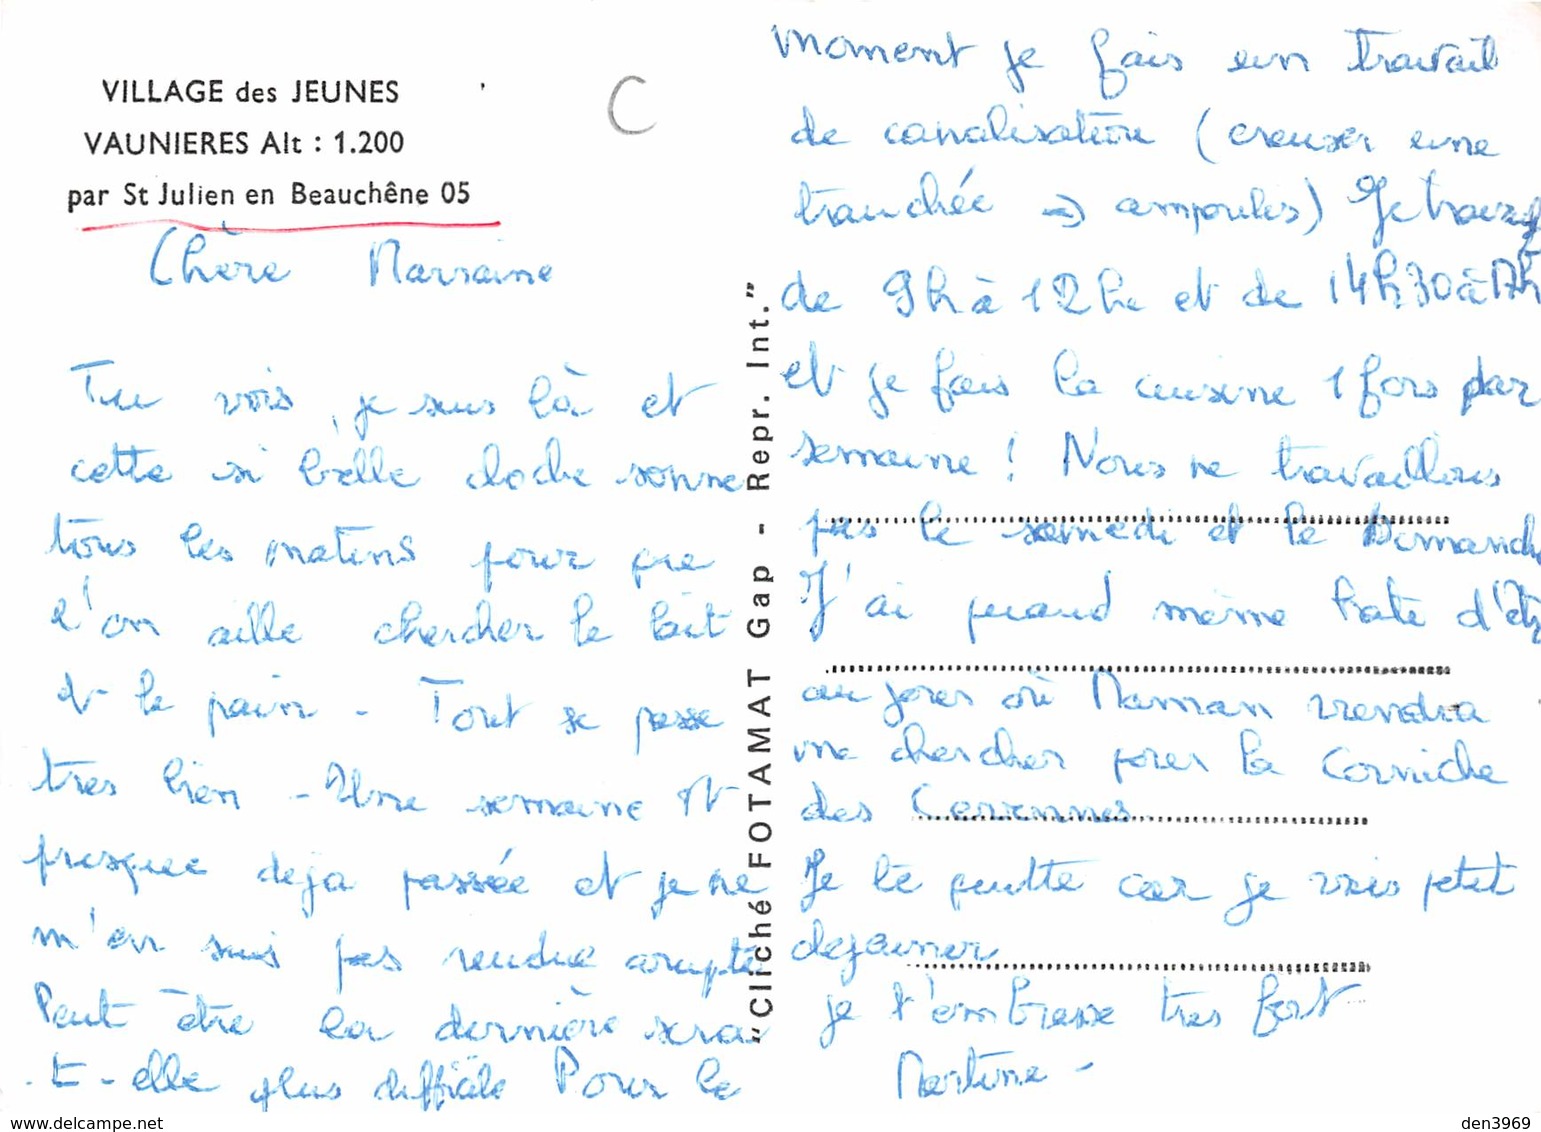 VILLAGE des JEUNES
VAUNIERES Alt : 1.200
par St Julien en Beauchêne 05
C
Chère Marraine
Tu vois, je suis là et
cette si belle cloche sonne
tous les matins pour que
l'on aille chercher le lait
et le pain - Tout se passe
tres bien - Une semaine et
presque deja passée et je ne
m'en suis pas rendue compte
Peut être la dernière sera
-t-elle plus difficile Pour le
"Cliché FOTAMAT Gap - Repr. Int."
moment je fais un travail
de canalisation (creuser une
tranchée => ampoules) Je travaille
de 9h à 12h et de 14h30 à 17h
et je fais la cuisine 1 fois par
semaine ! Nous ne travaillons
pas le samedi et le Dimanche
J'ai quand même hate d'être
au jour où Maman viendra
me chercher pour la Corniche
des Cevennes
Je te quitte car je vais petit
dejeuner
je t'embrasse tres fort
Martine -
delcampe.net
den3969